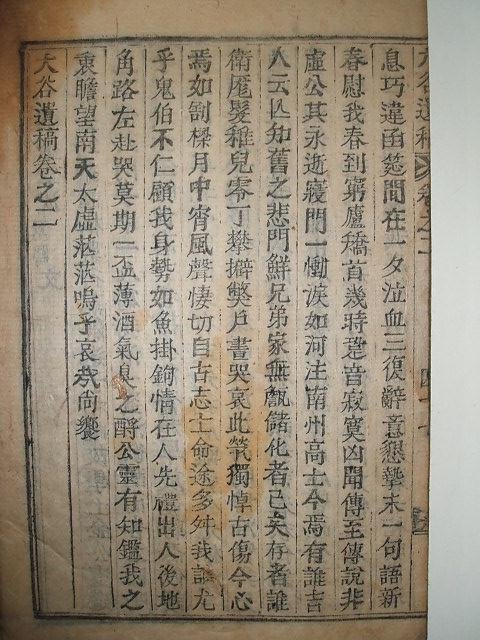 息巧違函筵間在一夕泣血三復辭意懇摯末一句語新
春慰我春到窮廬矯首幾時跫音寂寞凶聞傳至傳說非
虛公其永逝寢門一慟淚如河注南州高士今焉有誰吉
人云亾分舊之悲門鮮兄弟家無甔儲化者已矣存者誰
衛髦髮稚兒零丁攀擗獘戶晝哭哀此煢獨悼古傷今心
焉如割樑月中宵風聲悽切自古志士命途多舛我誰尤
乎鬼伯不仁顧我身勢如魚掛鉤情在人先禮出人後地
角路左赴哭莫期一盃薄酒氣臭之酹公靈有知鑑我之
衷瞻望南天太虛茫茫嗚乎哀哉尙饗
大谷遺稿卷之二
大谷遺稿 卷之二